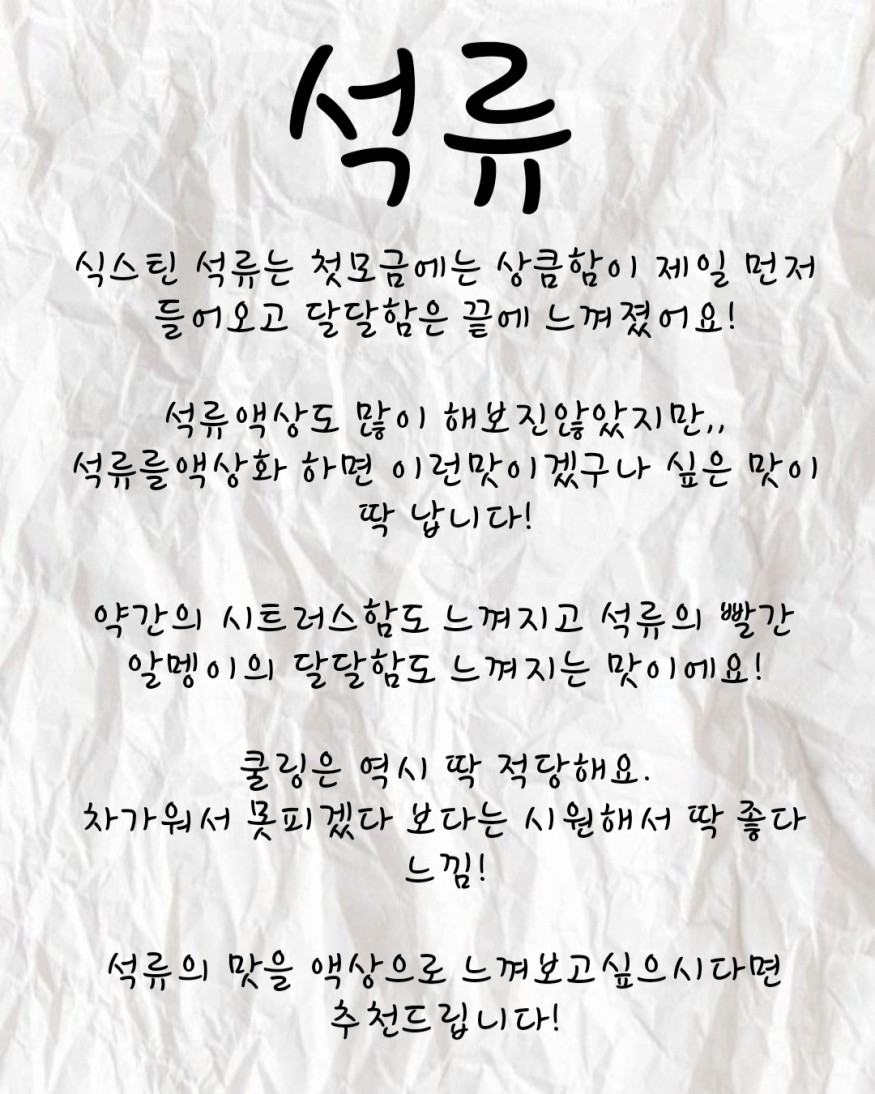 석류
식스틴 석류는 첫모금에는 상큼함이 제일 먼저
들어오고 달달함은 끝에 느껴졌어요!
석류액상도 많이 해보진않았지만,,
석류를액상화 하면 이런맛이겠구나 싶은 맛이
딱 납니다!
약간의 시트러스함도 느껴지고 석류의 빨간
알멩이의 달달함도 느껴지는 맛이에요!
쿨링은 역시 딱 적당해요.
차가워서 못피겠다 보다는 시원해서 딱 좋다
느낌!
석류의 맛을 액상으로 느껴보고싶으시다면
추천드립니다!